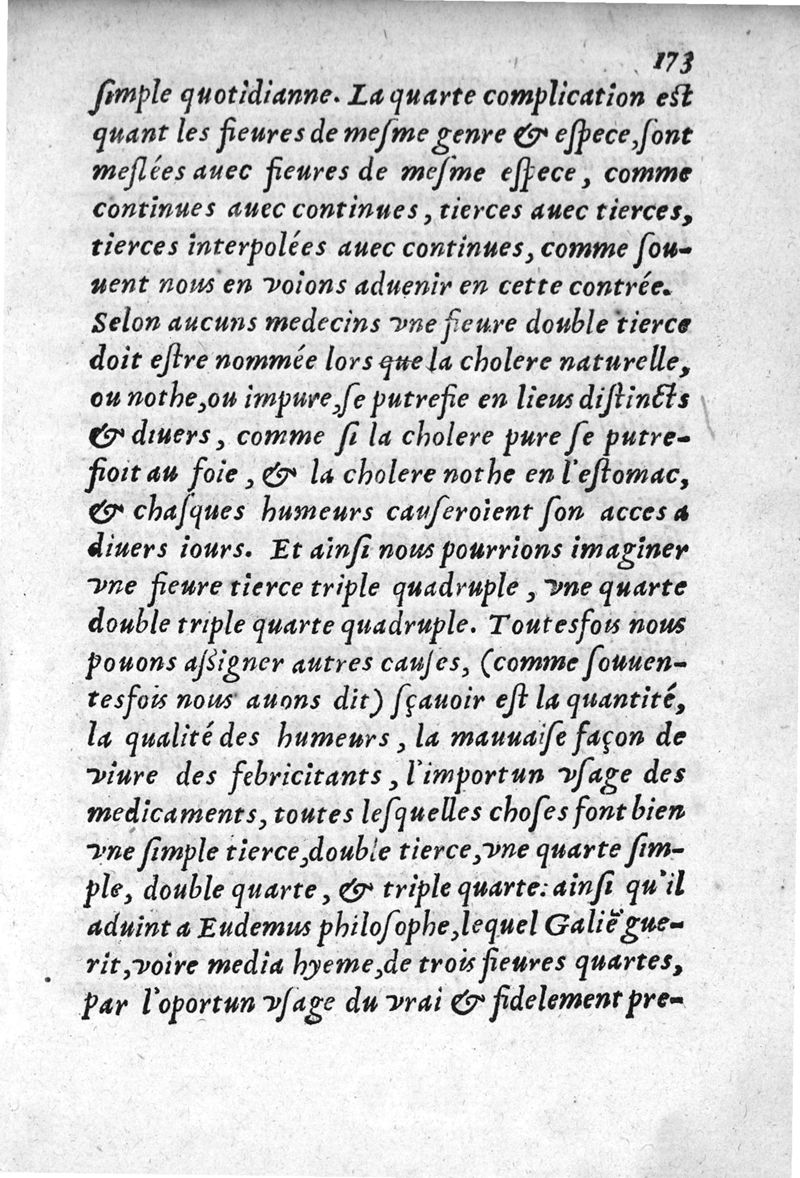 173
ſimple quotidianne. La quarte complication eſt
quant les fieures de meſme genre & eſpece, ſont
meſlées auec fieures de meſme eſpece, comme
continues auec continues, tierces auec tierces,
tierces interpolées auec continues, comme ſou-
uent nous en voions aduenir en cette contrée.
Selon aucuns medecins vne fieure double tierce
doit eſtre nommée lors que la cholere naturelle,
ou nothe, ou impure, ſe putrefie en lieus diſtincts
& diuers, comme ſi la cholere pure ſe putre-
fioit au foie, & la cholere nothe en l'eſtomac,
& chaſques humeurs cauſeroient ſon acces a
diuers iours. Et ainſi nous pourrions imaginer
vne fieure tierce triple quadruple, vne quarte
double triple quarte quadruple. Toutesfois nous
pouons aſsigner autres cauſes, (comme ſouuen-
tesfois nous auons dit) ſçauoir eſt la quantité,
la qualité des humeurs, la mauuaiſe façon de
viure des febricitants, l'importun vſage des
medicaments, toutes leſquelles choſes font bien
vne ſimple tierce, double tierce, vne quarte ſim-
ple, double quarte, & triple quarte: ainſi qu'il
aduint a Eudemus philoſophe, lequel Galiẽ gue-
rit, voire media hyeme, de trois fieures quartes,
par l'oportun vſage du vrai & fidelement pre-